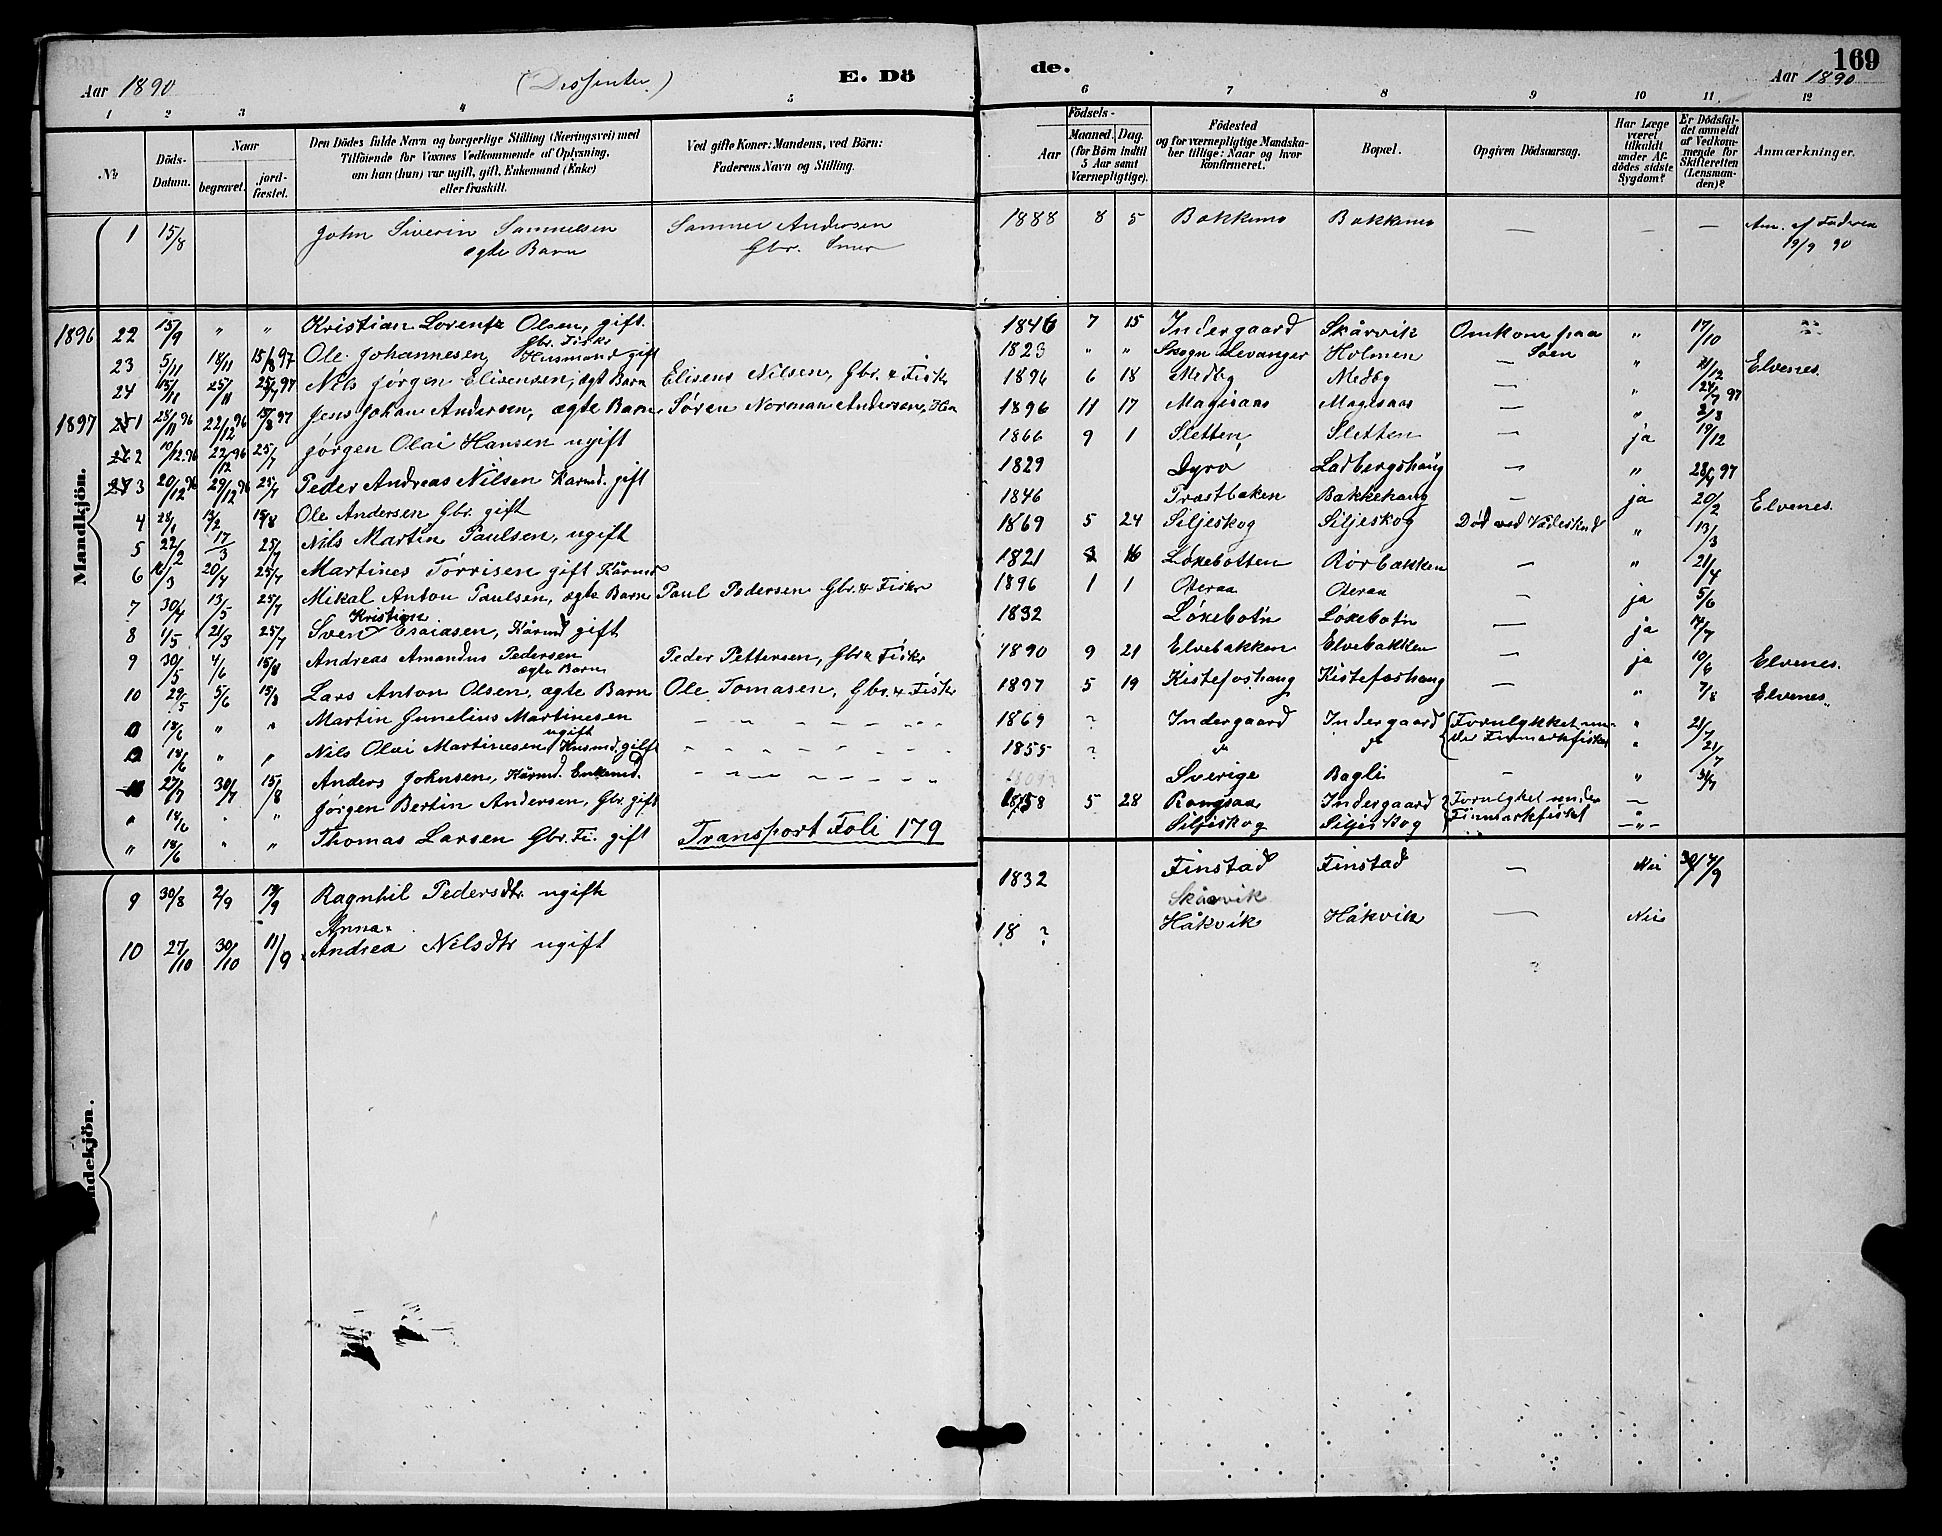 169
Aar 1890 (Dissenter.) E. Dö de. Aar 1890
1 2 3 4 5 6 7 8 9 10 11 12
№
Döds-Datum.
Naar
begravet. jordfæstet.
Den Dödes fulde Navn og borgerlige Stilling (Næringsvei) med
Tilföiende for Voxnes Vedkommende af Oplysning,
om han (hun) var ugift, gift, Enkemand (Enke)
eller fraskilt.
Ved gifte Koner: Mandens, ved Börn:
Faderens Navn og Stilling.
Födsels-
Aar Maaned. Dag.
(for Börn indtil
5 Aar samt
Værnepligtige).
Födested
og for værnepligtige Mandskaber tillige: Naar og hvor
konfirmeret.
Bopæl.
Opgiven Dödsaarsag.
Har Læge
været
tilkaldt
under Afdödes sidste
Sygdom?
Er Dödsfaldet anmeldt
af Vedkommende for
Skifteretten
(Lensmanden)?
Anmærkninger.
Mandkjön.
1 15/8 John Siverin Samuelsen Andersen 1888 8 5 Bakkemo Bakkemo — — — Anm. af Faderen
ægte Barn Gbr. 19/9 90
1896 22 15/9 " " Kristian Lorentz Olsen, gift. 1846 7 15 Indergaard Skårvik Omkom paa " 17/10
Gbr. Fisker Søen
23 5/11 18/11 15/8 97 Ole Johannesen, Husmand gift 1823 " " Skogn Levanger Holmen — " Elvenes.
24 15/11 25/11 25/7 97 Nils Jørgen Elisensen, ægte Barn Elisens Nilsen, Gbr. & Fisker 1896 6 18 Medby Medby — " 24/7 97
1897 1 28/11 96 22/12 96 15/8 97 Jens Johan Andersen, ægte Barn Søren Norman Andersen, 1896 11 17 Magisaas Magisaas — "
2 12/12 96 22/12 96 25/7 Jørgen Olai Hansen ugift 1866 9 1 Sletten Sletten — ja 19/12
3 20/12 96 29/12 96 25/7 Peder Andreas Nilsen Kaarmd. gift 1829 Dyrø Ladbergshaug — "
4 28/1 13/2 15/8 Ole Andersen Gbr. gift 1846 Trastbaken Bakkehaug — ja 20/2 Elvenes.
5 22/2 17/3 25/7 Nils Martin Paulsen, ugift 1869 5 24 Siljeskog Siljeskog Død ved Vådeskud " 13/3
6 16/3 20/4 25/7 Martines Torrisen gift Kårmd 1821 3 16 Løkebotten Rørbakken — " 21/4
7 30/4 13/5 25/7 Mikal Anton Paulsen, ægte Barn Paul Pedersen Gbr. & Fisker 1896 1 1 Oteraa Oteraa — ja 5/6
Kristian
8 1/5 21/5 25/7 Sven Esaiasen, Kårmd gift 1832 Løkebotn Løkebotn — ja 17/7
9 30/5 4/6 15/8 Andreas Amandus Pedersen Peder Pettersen, Gbr & Fisker 1890 9 21 Elvebakken Elvebakken — ja 10/6 Elvenes.
ægte Barn
10 29/5 5/6 15/8 Lars Anton Olsen, ægte Barn Ole Tomasen, Gbr. & Fisker 1897 5 19 Kistefoshaug Kistefoshaug — " 7/8 Elvenes.
0 18/6 " " Martin Gunelius Martinesen 1869 ? Indergaard Indergaard Forulykket un- " 21/7
ugift
0 18/6 " " Nils Olai Martinesen, Husmd. gift 1855 ? do do der Finmarkfisket " 21/7
11 27/7 30/7 15/8 Anders Johnsen, Kårmd. Enkemd. Sverige Bagli — " 31/7
" 18/6 " " Jørgen Bertin Andersen, Gbr. gift 1858 5 28 Rongsaa Indergaard Forulykket under —
" 18/6 " " Thomas Larsen Gbr. Fi. gift Transport Foli 179 Siljeskog Siljeskog Finmarkfisket —"—
Kvindekjön.
9 30/8 2/9 13/9 Ragnhil Pedersdtr. ugift 1832 Finstad Finstad — Nei
Anna Skårvik
10 27/10 30/10 11/9 Andrea Nilsdtr ugift 18 ? Håkvik Håkvik — Nei